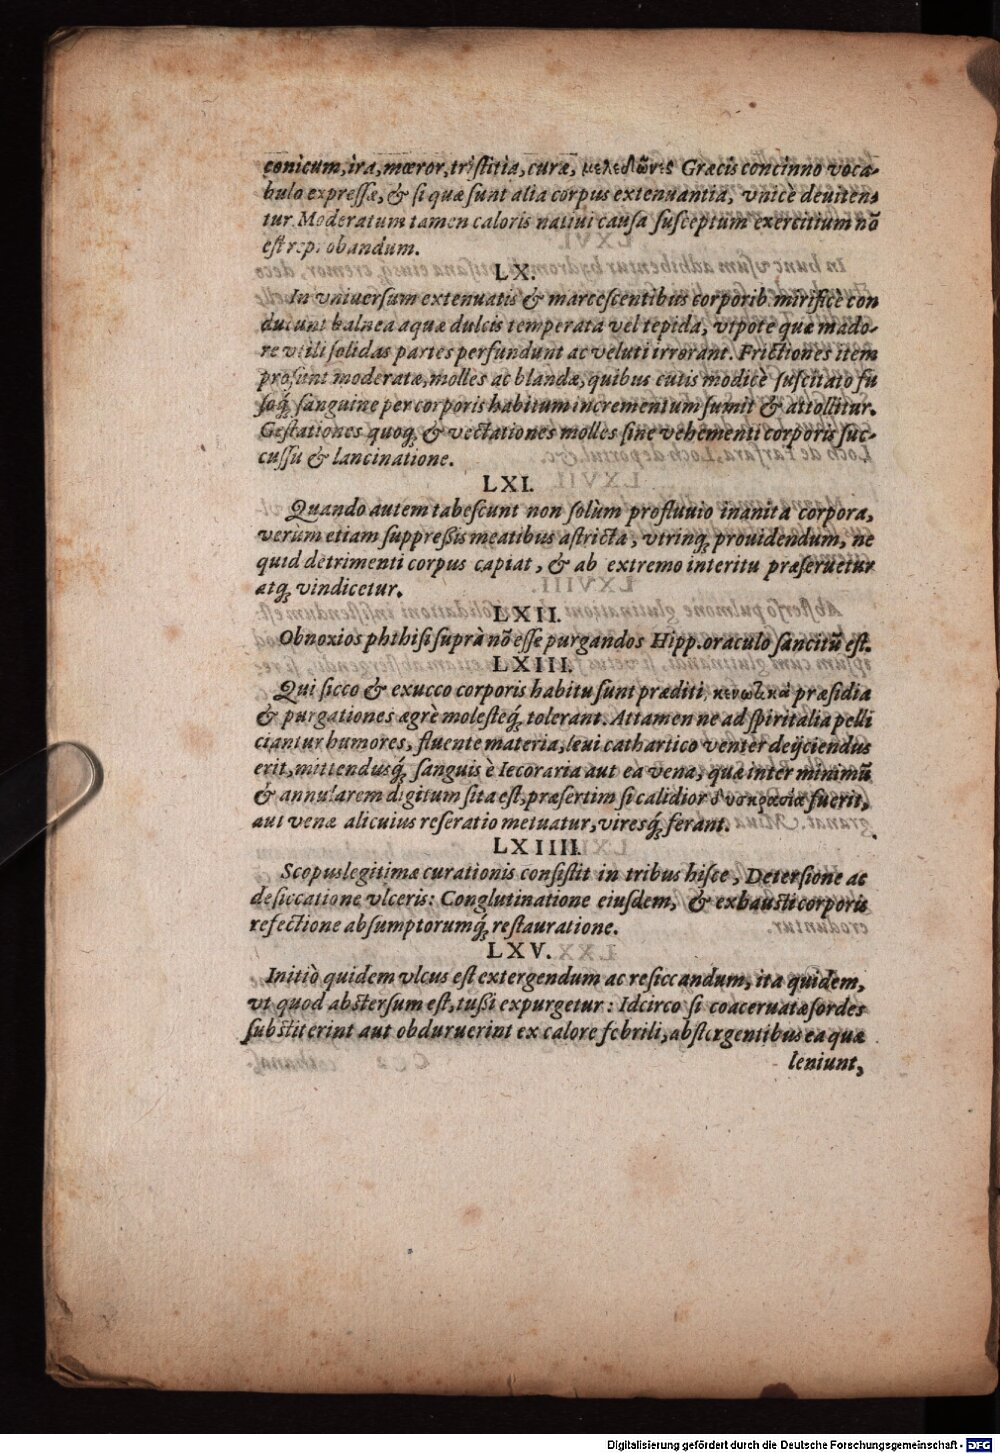 conicum, ira, mœror, tristitia, curæ, μελεδῶνες Græcis concinno voca-
bulo expressæ, & si quæ sunt alia corpus extenuantia, vnicè deuiten-
tur. Moderatum tamen caloris natiui causa susceptum exercitium nõ
est reprobandum.
LX.
In vniuersum extenuatis & marcescentibus corporib. mirificè con
ducunt balnea aquæ dulcis temperata vel tepida, vtpote quæ mado-
re vtili solidas partes perfundunt ac veluti irrorant. Frictiones item
prosunt moderatæ, molles ac blandæ, quibus cutis modicè suscitato fu
soq́; sanguine per corporis habitum incrementum sumit & attollitur.
Gestationes quoq; & vectationes molles sine vehementi corporis suc-
cussu & lancinatione.
LXI.
Quando autem tabescunt non solùm profluuio inanita corpora,
verum etiam suppreßis meatibus astricta, vtrinq; prouidendum, ne
quid detrimenti corpus capiat, & ab extremo interitu præseruetur
atq; vindicetur.
LXII.
Obnoxios phthisi suprà nõ esse purgandos Hipp. oraculo sancitũ est.
LXIII.
Qui sicco & exucco corporis habitu sunt præditi, κενωτικὰ præsidia
& purgationes ægrè molesteq́; tolerant. Attamen ne ad spiritalia pelli
ciantur humores, fluente materia, leui cathartico venter deÿciendus
erit, mittendusq́; sanguis è Iecoraria aut ea vena, quæ inter minimũ
& annularem digitum sita est, præsertim si calidior δυσκρασία fuerit,
aut venæ alicuius reseratio metuatur, viresq́; ferant.
LXIIII.
Scopus legitimæ curationis consistit in tribus hisce, Detersione ac
desiccatione vlceris: Conglutinatione eiusdem, & exhausti corporis
refectione absumptorumq́; restauratione.
LXV.
Initiò quidem vlcus est extergendum ac resiccandum, ita quidem,
vt quod abstersum est, tußi expurgetur: Idcirco si coaceruatæ sordes
substiterint aut obduruerint ex calore febrili, abstergentibus ea quæ
leniunt,
Digitalisierung gefördert durch die Deutsche Forschungsgemeinschaft - DFG